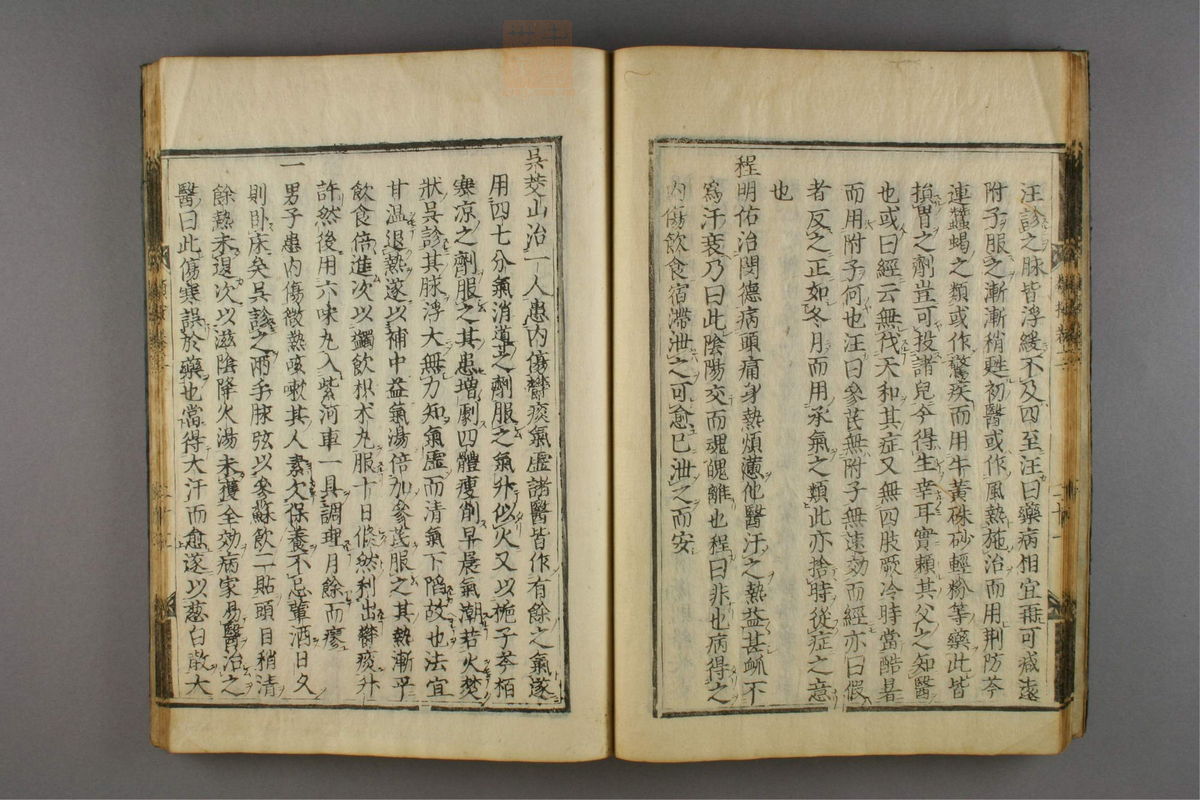 汪診之脉皆浮緩不及四至汪曰藥病相宜再可減遠
附子服之漸漸稍甦初醫或作風熱施治而用荆防芩
連蠶蝎之類或作驚疾而用牛黃硃砂輕粉等藥此皆
損胃之劑豈可投諸兒今得生幸耳實賴其父之知醫
也或曰經云無伐天和其症又無四肢厥冷時當酷暑
而用附子何也汪曰參芪無附子無速効而經亦曰假
者反之正如冬月而用承氣之類此亦捨時從症之意
也
程明佑治閔德病頭痛身熱煩懣他醫汗之熱益甚衂不
爲汗衰乃曰此陰陽交而魂魄離也程曰非也病得之
內傷飮食宿滯泄之可愈已泄之而安
吳茭山治一人患內傷鬱痰氣虛諸醫皆作有餘之氣遂
用四七分氣消導之劑服之氣升似火又以梔子芩栢
寒凉之劑服之其患增劇四體瘦削早晨氣潮若火焚
狀吳診其脉浮大無力知氣虛而清氣下陷故也法宜
甘温退熱遂以補中益氣湯倍加參芪服之其熱漸平
飮食倍進次以蠲飮枳朮丸服十日倏然利出鬱痰升
許然後用六味丸入紫河車一具調理月餘而瘳
一男子患內傷微熱咳嗽其人素欠保養不忌葷酒日久
則卧床矣吳診之兩手脉弦以參蘇飮二貼頭目稍清
餘熱未退次以滋陰降火湯未獲全効病家易醫治之
醫曰此傷寒誤於藥也當得大汗而愈遂以葱白散大